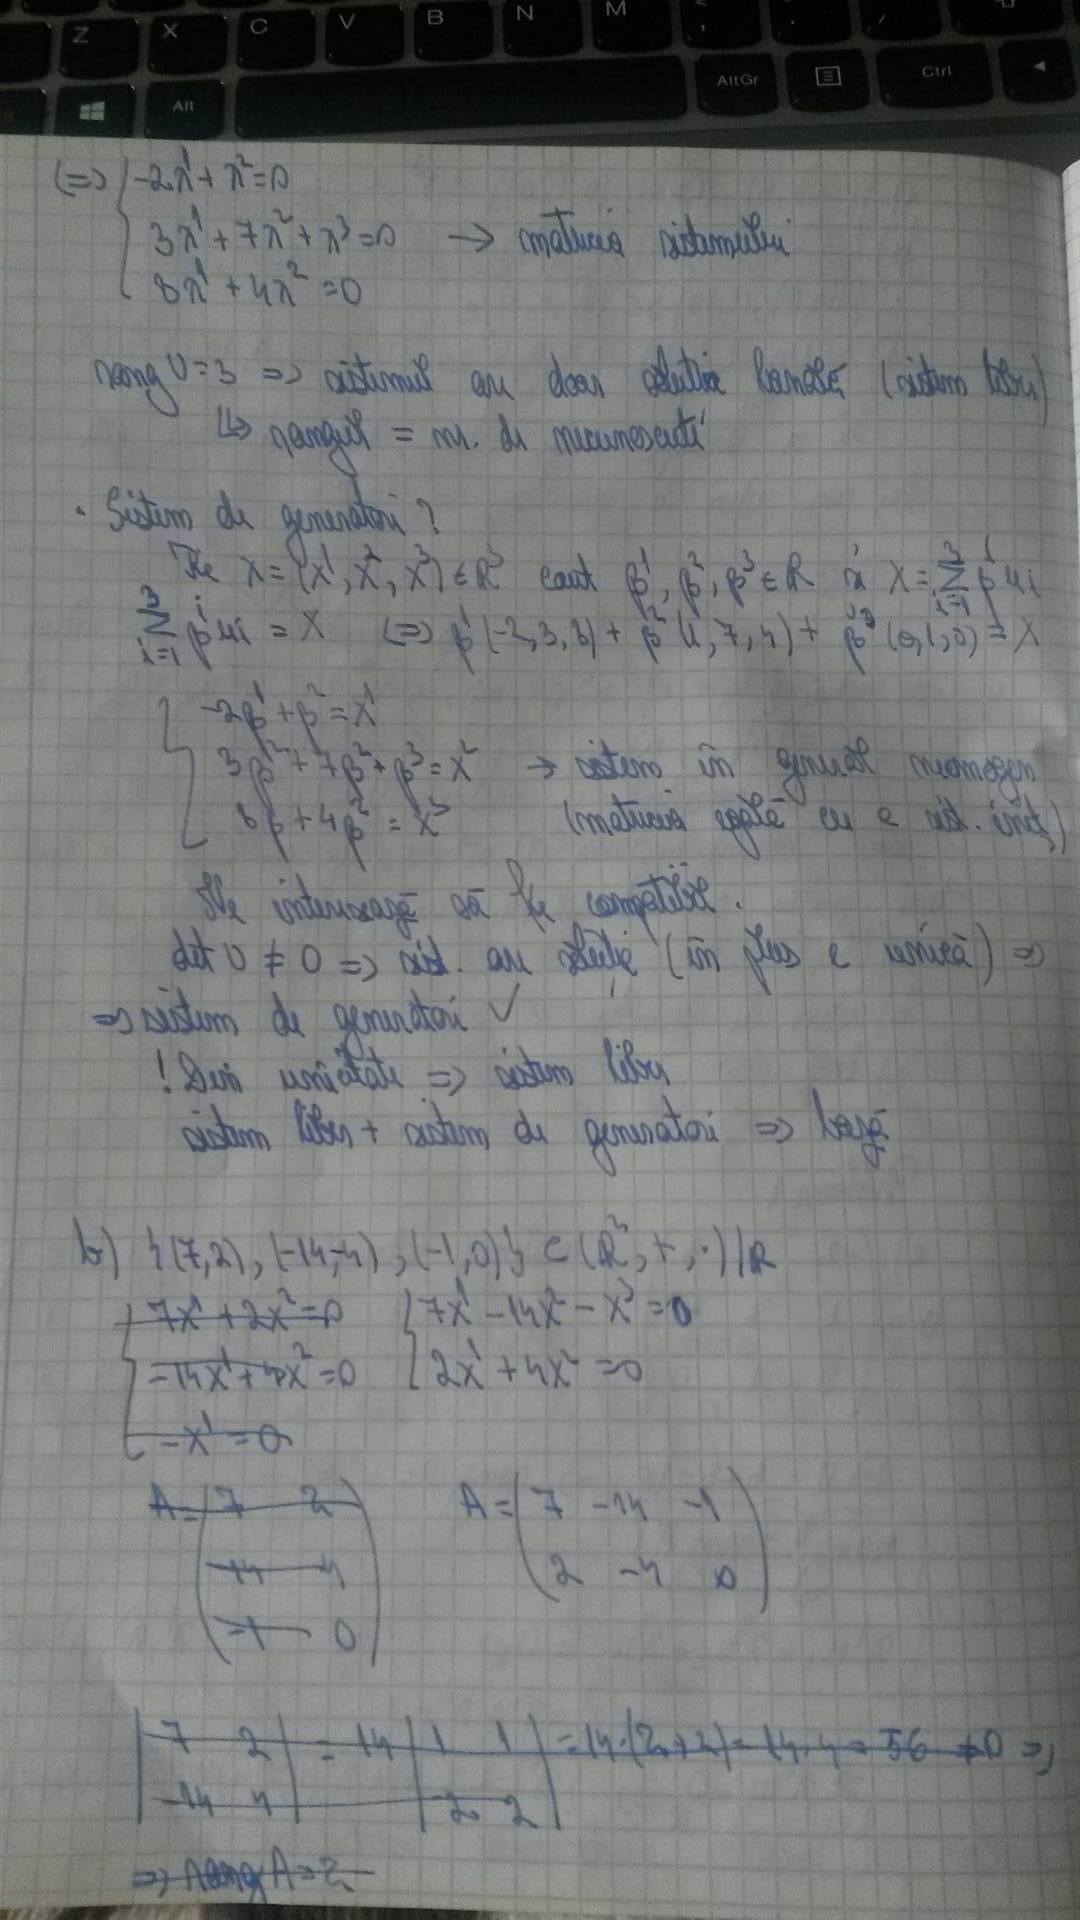 Z X C V B N M
AltGr Ctrl
Alt
(=> { -2λ¹ + λ² = 0
3λ¹ + 7λ² + λ³ = 0 → matricea sistemului
8λ¹ + 4λ² = 0
rang U = 3 => sistemul are doar soluția banală (sistem liber)
↳ rangul = nr. de necunoscute
• Sistem de generatori?
Fie X = (x¹, x², x³) ∈ R³ caut β¹, β², β³ ∈ R aî X = Σ³ᵢ₌₁ βⁱ uᵢ
Σ³ᵢ₌₁ βⁱ uᵢ = X (=) β¹(-2, 3, 8) + β²(1, 7, 4) + β³(0, 1, 0) = X
{ -2β¹ + β² = x¹
3β² + 7β² + β³ = x² → sistem în general neomogen
8β + 4β² = x³ (matricea egală cu a sist. inț)
Ne interesează să fie compatibil.
det U ≠ 0 => sist. are soluție (în plus e unică) =>
=> sistem de generatori ✓
! Din unicitate => sistem liber
sistem liber + sistem de generatori => bază
b) {(7,2), (-14,-4), (-1,0)} ⊂ (R², +, ·)|R
{ 7x¹ + 2x² = 0 { 7x¹ - 14x² - x³ = 0
-14x¹ + 4x² = 0 2x¹ + 4x² = 0
-x¹ = 0
A = (7 2 A = (7 -14 -1
-14 4 2 -4 0)
-1 0)
|7 2| = 14 |1 1| = 14·(2+2) = 14·4 = 56 ≠ 0 =>
|-14 4| |-2 2|
=> rang A = 2